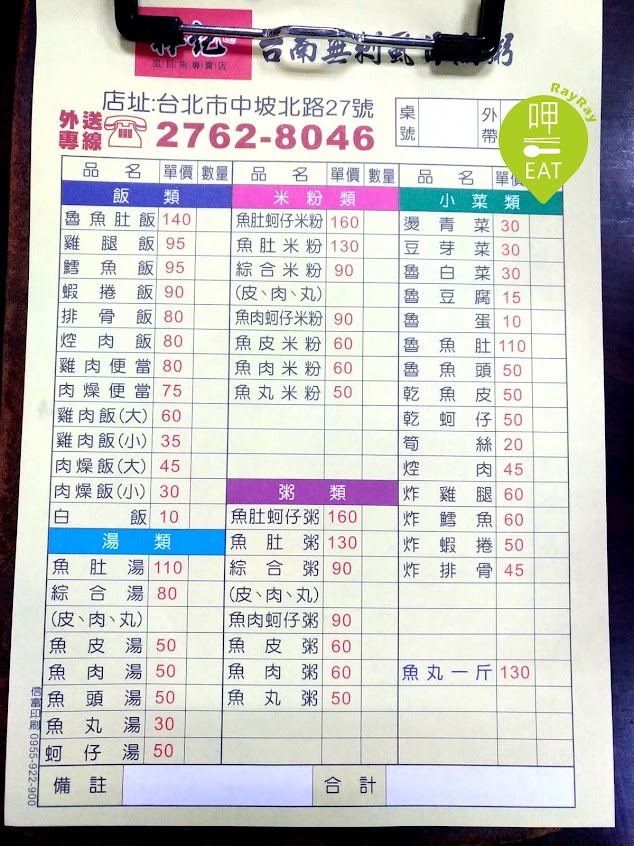 虱目魚專賣店
台南無刺虱目魚粥
店址:台北市中坡北路27號
外送專線 2762-8046
桌號 外帶
RayRay
呷
EAT
品名 單價 數量 品名 單價 數量 品名 單價
飯類
魯魚肚飯 140
雞腿飯 95
鱈魚飯 95
蝦捲飯 90
排骨飯 80
焢肉飯 80
雞肉便當 80
肉燥便當 75
雞肉飯(大) 60
雞肉飯(小) 35
肉燥飯(大) 45
肉燥飯(小) 30
白飯 10
湯類
魚肚湯 110
綜合湯 80
(皮、肉、丸)
魚皮湯 50
魚肉湯 50
魚頭湯 50
魚丸湯 30
蚵仔湯 50
米粉類
魚肚蚵仔米粉 160
魚肚米粉 130
綜合米粉 90
(皮、肉、丸)
魚肉蚵仔米粉 90
魚皮米粉 60
魚肉米粉 60
魚丸米粉 50
粥類
魚肚蚵仔粥 160
魚肚粥 130
綜合粥 90
(皮、肉、丸)
魚肉蚵仔粥 90
魚皮粥 60
魚肉粥 60
魚丸粥 50
小菜類
燙青菜 30
豆芽菜 30
魯白菜 30
魯豆腐 15
魯蛋 10
魯魚肚 110
魯魚頭 50
乾魚皮 50
乾蚵仔 50
筍絲 20
焢肉 45
炸雞腿 60
炸鱈魚 60
炸蝦捲 50
炸排骨 45
魚丸一斤 130
備註 合計
信富印刷 0955-922-900